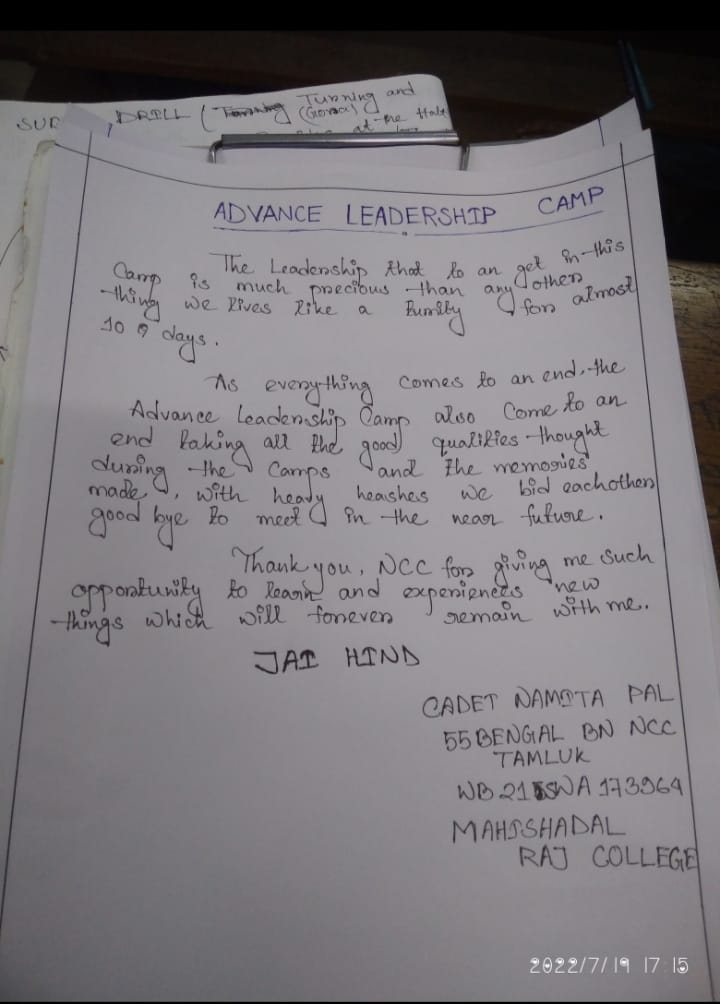 DRILL ( Turning and
(Gorna)
at the Halt
ADVANCE LEADERSHIP CAMP
The Leadership that to an get in this
Camp is much precious than any other
thing we lives like a Fumily for almost
10 days.
As everything comes to an end, the
Advance Leadership Camp also Come to an
end taking all the good qualities thought
during the Camps and the memories
made, with heavy heashes we bid eachother
good bye to meet in the near future.
Thank you, NCC for giving me such
opportunity to learn and experiences new
things which will forever remain with me.
JAI HIND
CADET NAMITA PAL
55 BENGAL BN NCC
TAMLUK
WB 21 SWA 173964
MAHISHADAL
RAJ COLLEGE
2022/7/19 17:15